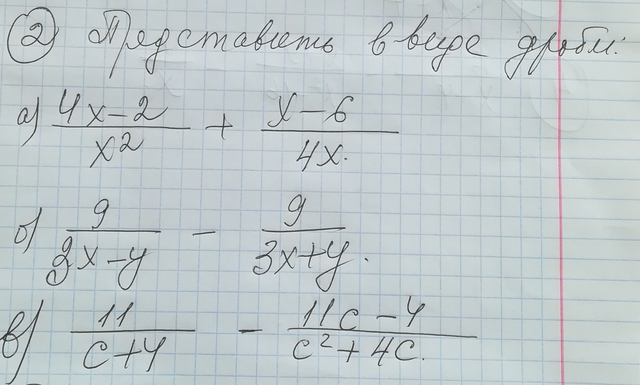 ② Представить в виде дроби:
а) (4x-2)/x² + (x-6)/4x.
б) 9/(3x-y) - 9/(3x+y).
в) 11/(c+4) - (11c-4)/(c²+4c).